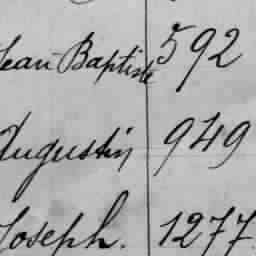 Jean Baptiste 592
Augustin 949
Joseph. 1277.